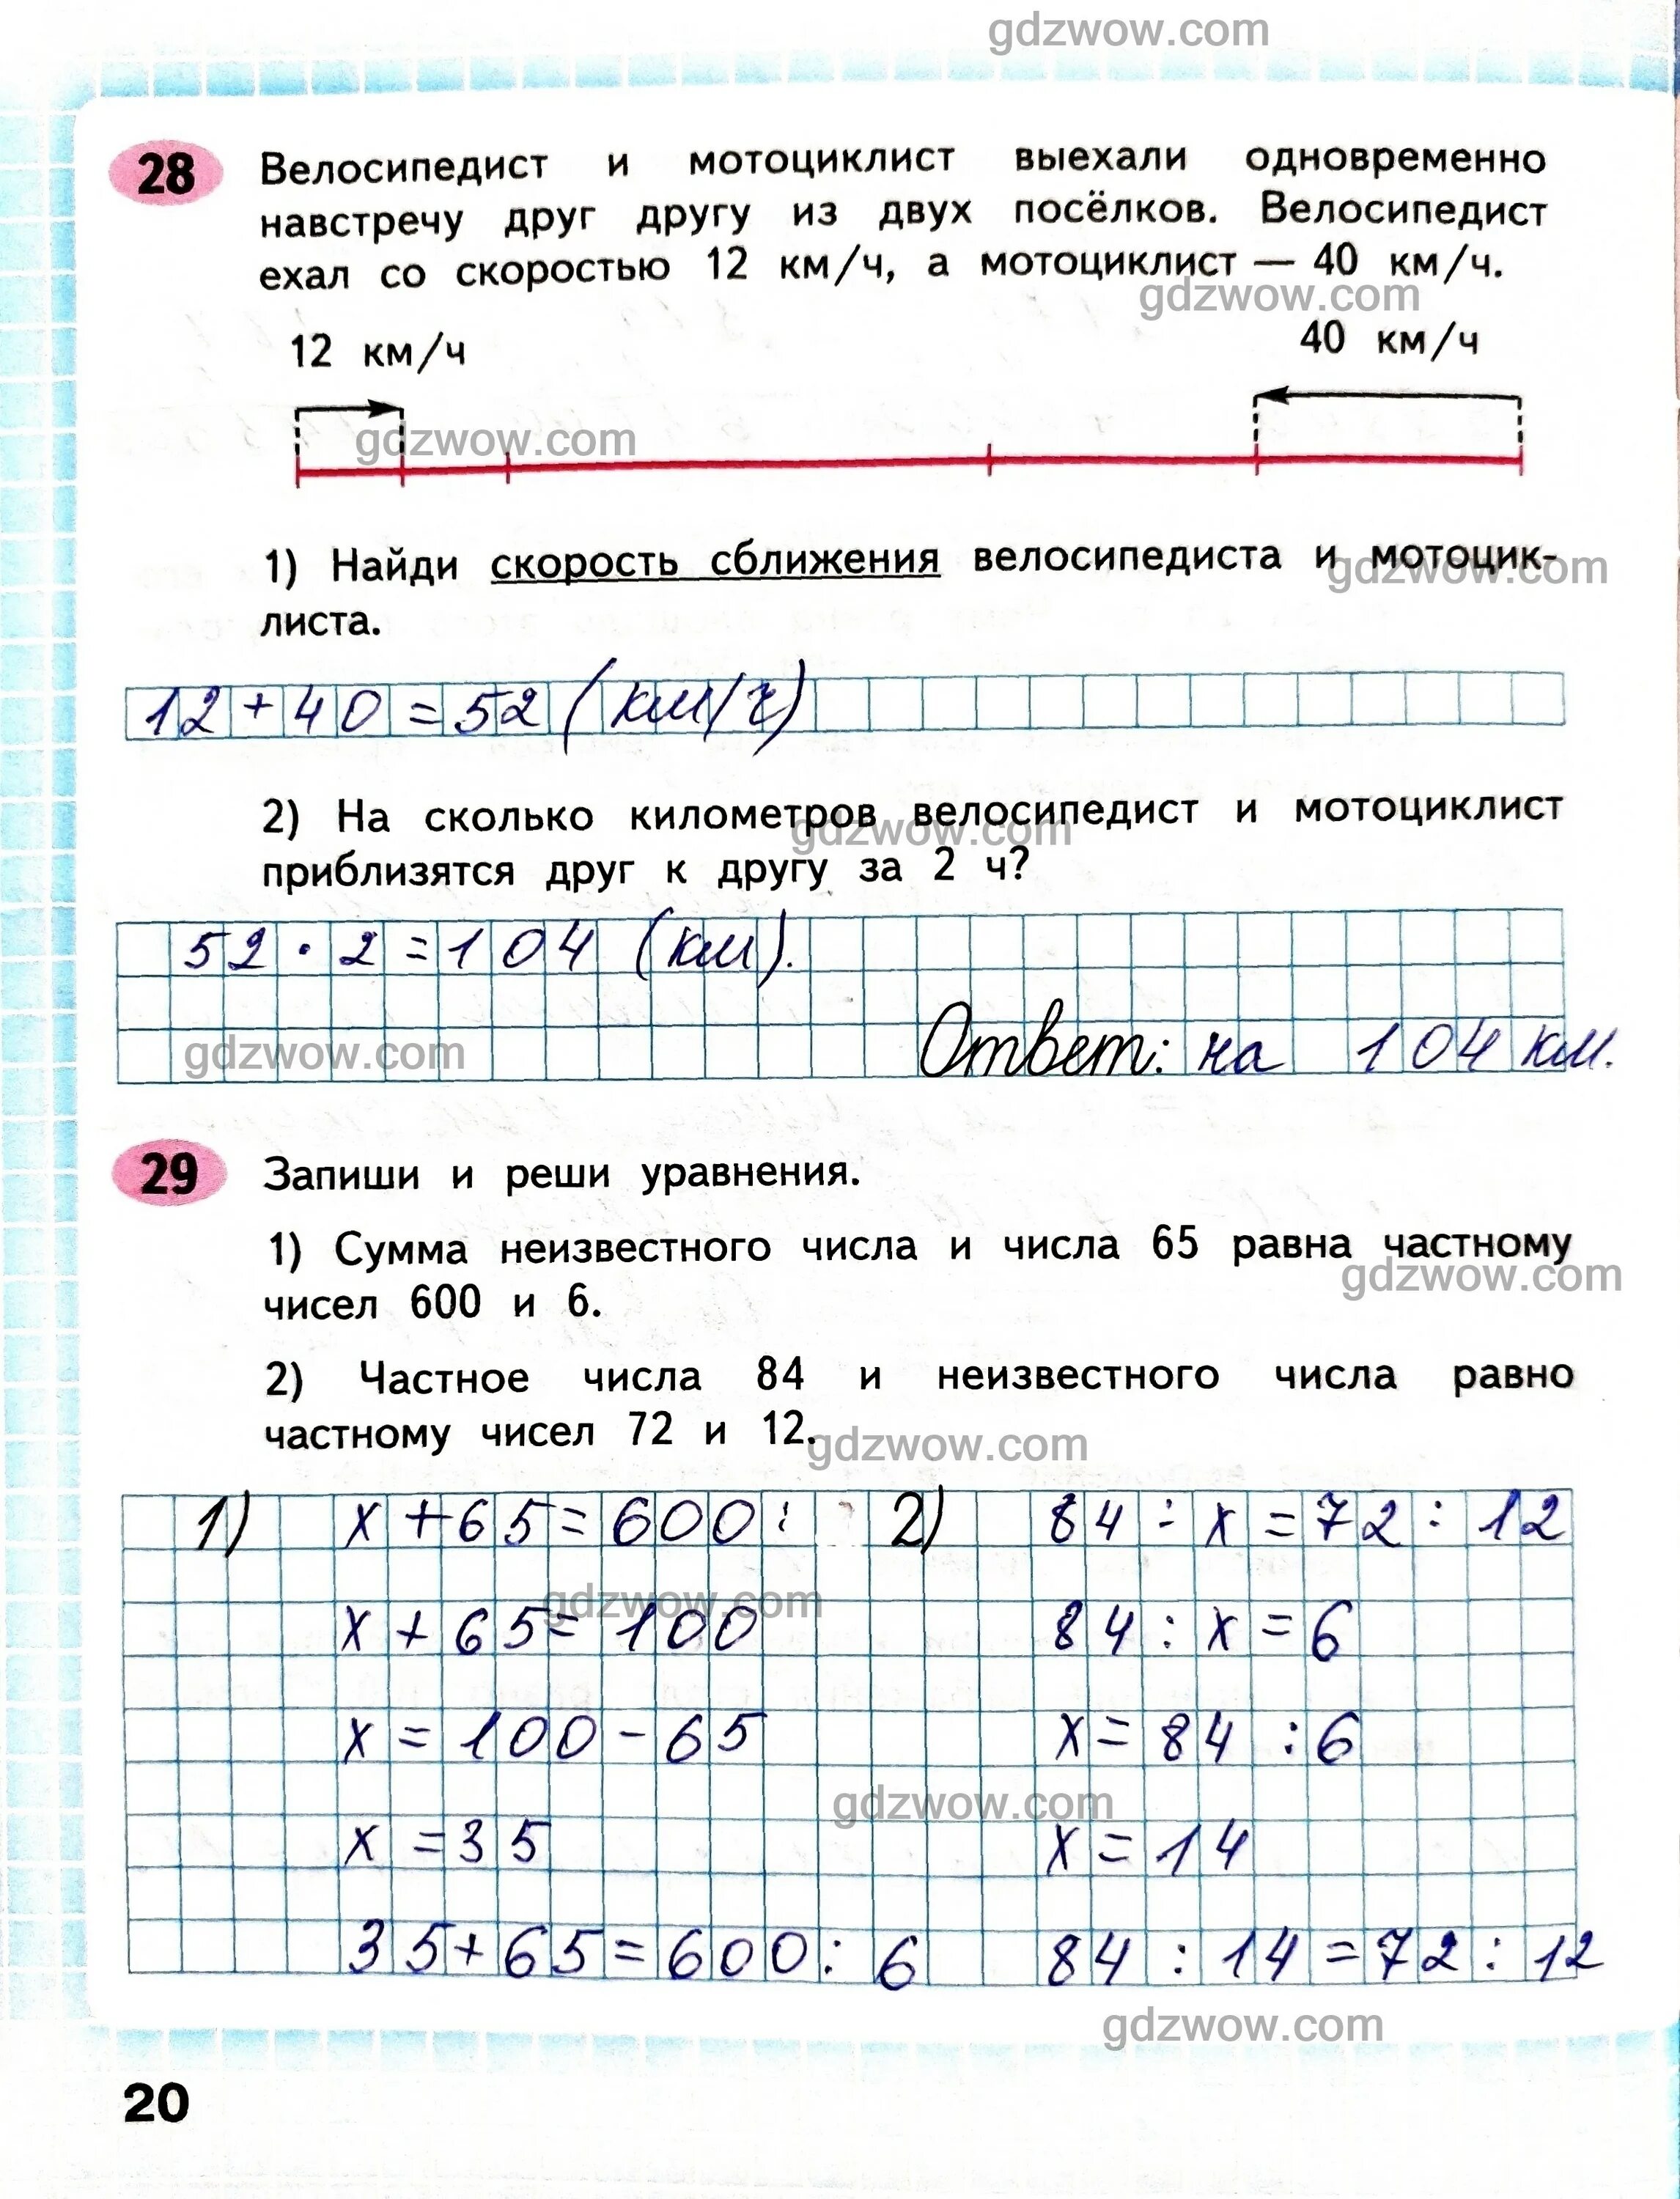 gdzwow.com
28 Велосипедист и мотоциклист выехали одновременно
навстречу друг другу из двух посёлков. Велосипедист
ехал со скоростью 12 км/ч, а мотоциклист — 40 км/ч.
gdzwow.com
12 км/ч 40 км/ч
gdzwow.com
1) Найди скорость сближения велосипедиста и мотоцик-
gdzwow.com
листа.
12 + 40 = 52 (км/ч)
2) На сколько километров велосипедист и мотоциклист
gdzwow.com
приблизятся друг к другу за 2 ч?
52 · 2 = 104 (км).
gdzwow.com
Ответ: на 104 км.
29 Запиши и реши уравнения.
1) Сумма неизвестного числа и числа 65 равна частному
gdzwow.com
чисел 600 и 6.
2) Частное числа 84 и неизвестного числа равно
частному чисел 72 и 12.
gdzwow.com
1) x + 65 = 600 : 2) 84 : x = 72 : 12
gdzwow.com
x + 65 = 100 84 : x = 6
x = 100 - 65 x = 84 : 6
gdzwow.com
x = 35 x = 14
35 + 65 = 600 : 6 84 : 14 = 72 : 12
gdzwow.com
20